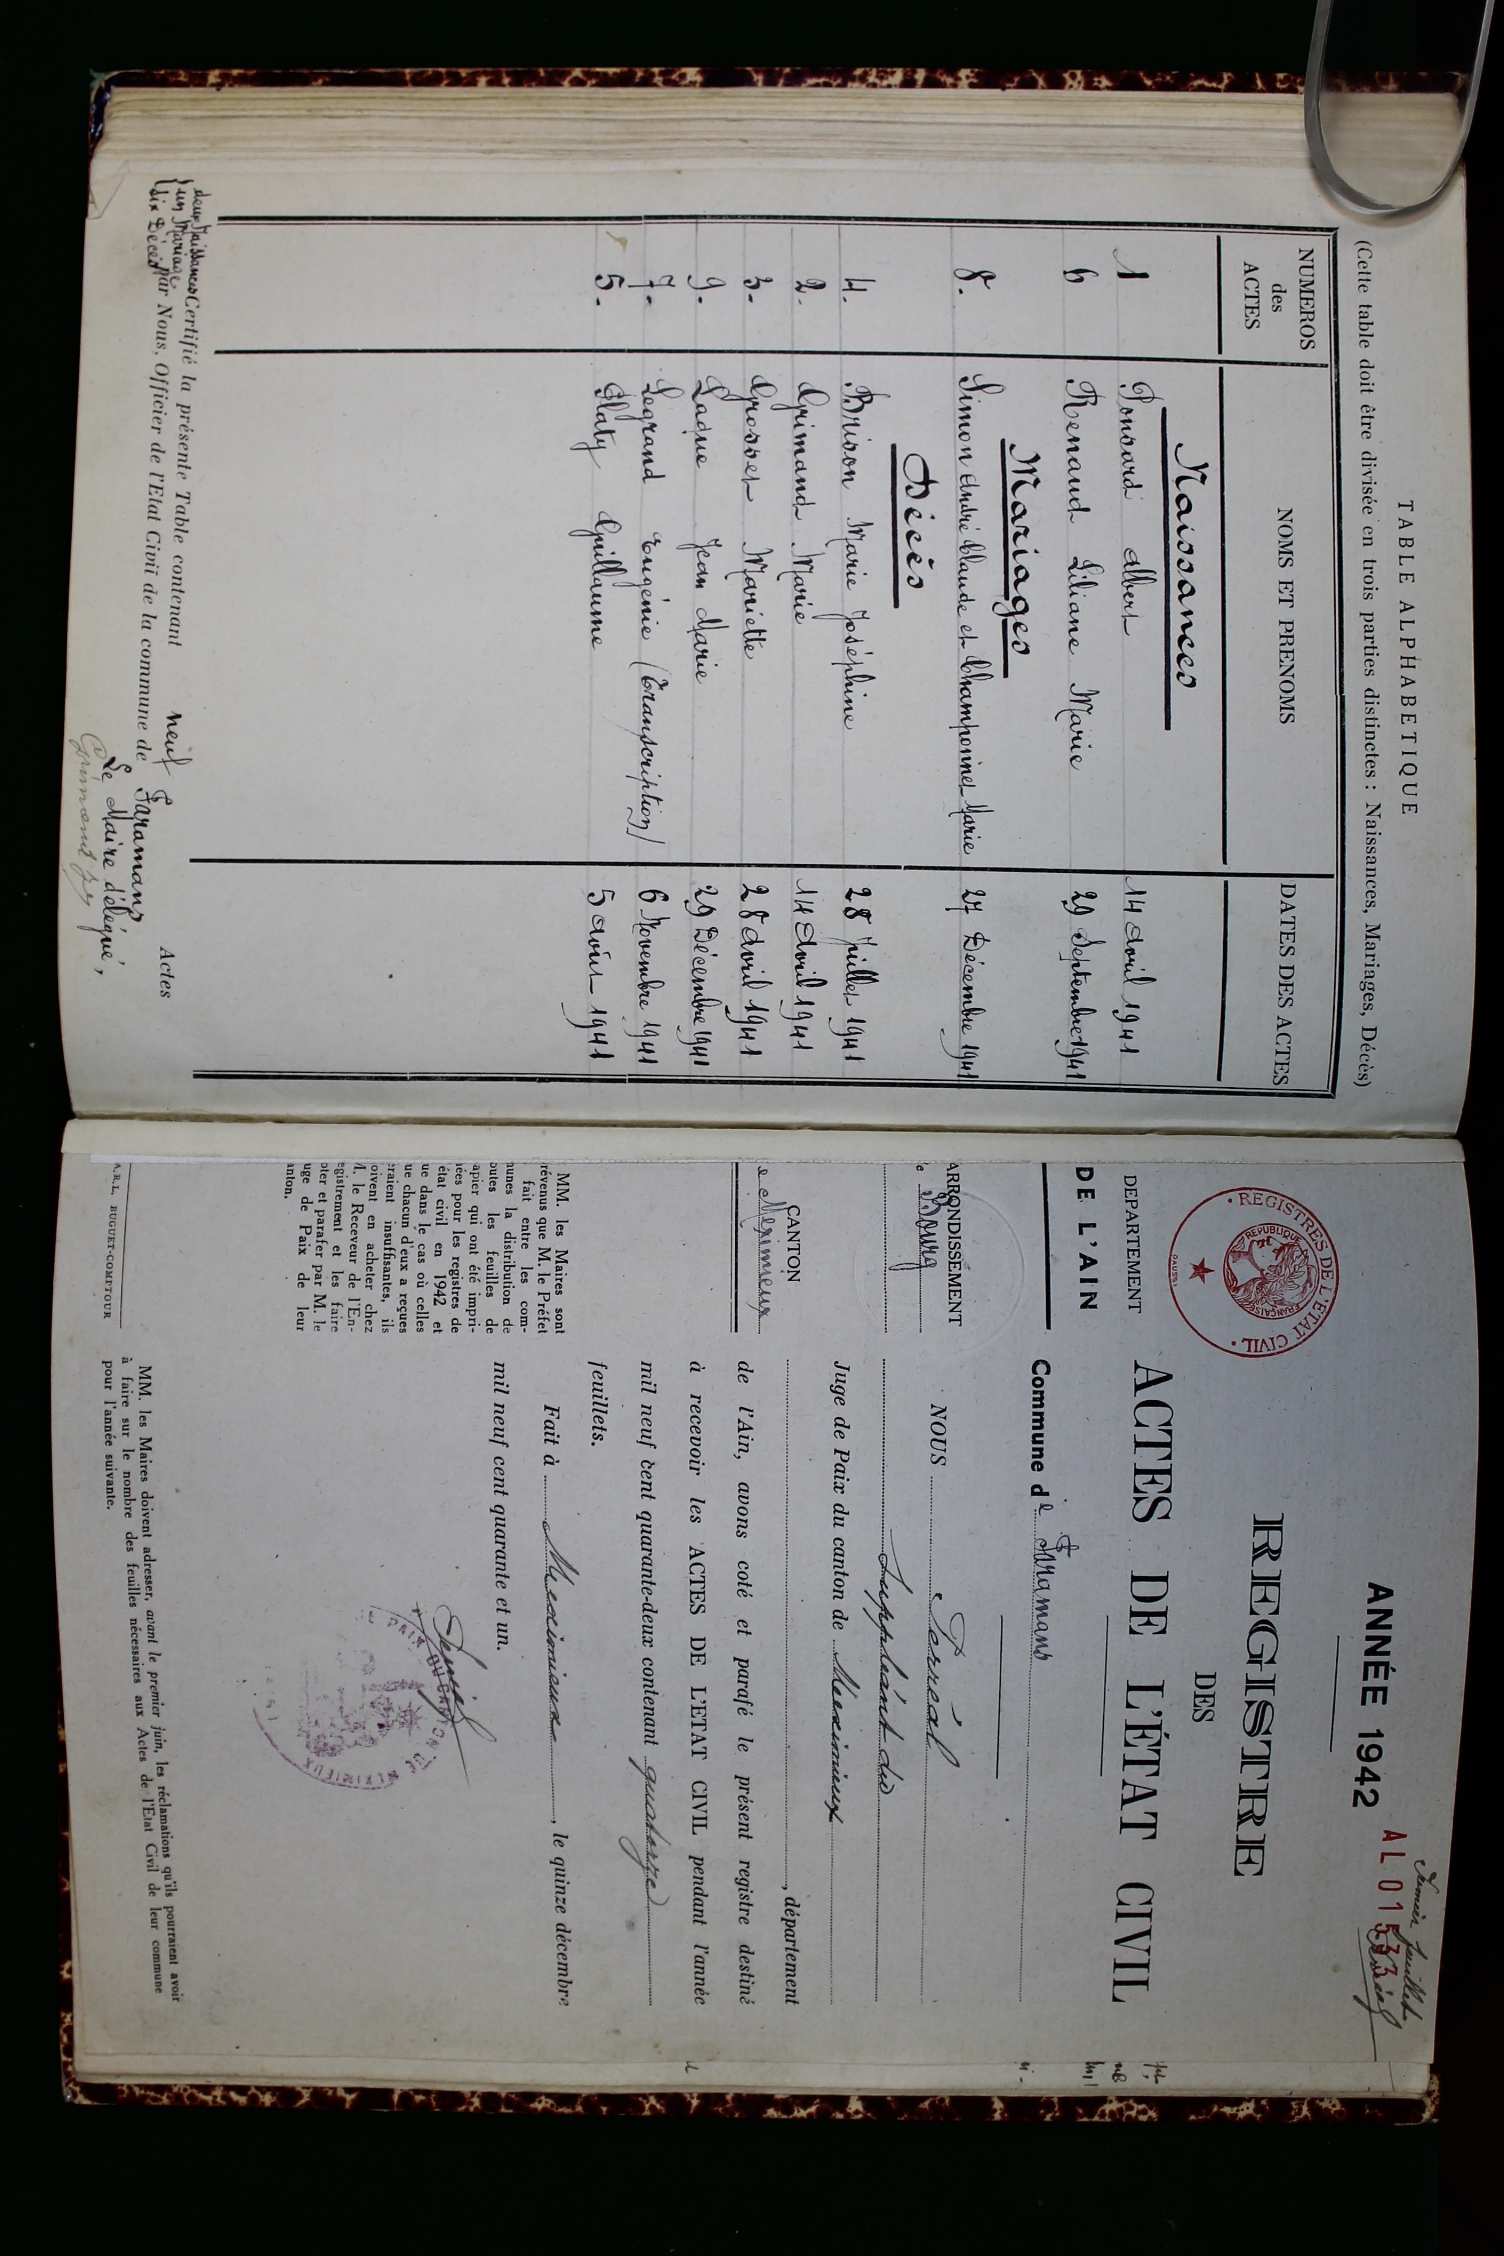 TABLE ALPHABETIQUE
(Cette table doit être divisée en trois parties distinctes : Naissances, Mariages, Décès)
NUMEROS des ACTES NOMS ET PRENOMS DATES DES ACTES
Naissances
1 Ponsard Albert 14 Avril 1941
6 Renaud Liliane Marie 29 Septembre 1941
Mariages
8. Simon André Claude et Champonnet Marie 27 Décembre 1941
Décès
4. Brison Marie Joséphine 28 Juillet 1941
2. Grimand Marie 14 Avril 1941
3. Grosset Mariette 28 Avril 1941
9. Laque Jean Marie 29 Décembre 1941
7. Legrand Eugénie (Transcription) 6 Novembre 1941
5. Platy Guillaume 5 Août 1941
deux Naissances
un Mariage
six Décès
Certifié la présente Table contenant neuf Actes
par Nous, Officier de l'Etat Civil de la commune de Faramans
Le Maire délégué,
premier feuillet
ANNÉE 1942
AL 01533
REGISTRE
DES
ACTES DE L'ÉTAT CIVIL
REGISTRES DE L'ETAT CIVIL
REPUBLIQUE FRANÇAISE
DEPARTEMENT
DE L'AIN
ARRONDISSEMENT
e Bourg
CANTON
e Meximieux
MM. les Maires sont
révenus que M. le Préfet
fait entre les com-
unes la distribution de
outes les feuilles de
apier qui ont été impri-
ées pour les registres de
état civil en 1942 et
ue dans le cas où celles
ue chacun d'eux a reçues
raient insuffisantes, ils
oivent en acheter chez
M. le Receveur de l'En-
egistrement et les faire
oter et parafer par M. le
uge de Paix de leur
anton.
A.R.L. BUGUET-COMPTOUR
Commune de Faramans
NOUS Perréal
Suppléant du
Juge de Paix du canton de Meximieux
, département
de l'Ain, avons coté et parafé le présent registre destiné
à recevoir les ACTES DE L'ETAT CIVIL pendant l'année
mil neuf cent quarante-deux contenant quatorze
feuillets.
Fait à Meximieux, le quinze décembre
mil neuf cent quarante et un.
PAIX DU CANTON DE MEXIMIEUX
MM. les Maires doivent adresser, avant le premier juin, les réclamations qu'ils pourraient avoir
à faire sur le nombre des feuilles nécessaires aux Actes de l'Etat Civil de leur commune
pour l'année suivante.